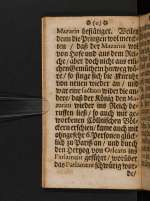 (o)
Mazarin bestätiget. Weilen
denn die Printzen wol mercke-
ten / daß der Mazarin wol
von Hofe und aus dem Rei-
che / aber doch nicht aus etli-
chen Gemüthern hinweg we-
re / so finge sich die Unruhe
von neuem wieder an / und
war eine Losung wider die an-
dere / daß der König den Ma-
zarin wieder ins Reich be-
ruffen ließ / so auch mit ge-
worbenen Cöllnischen Völ-
ckern erschien / kame auch mit
ohngefehr 6. Personen
sich zu Pariß an / und durch
den Hertzog von Orleans ins
Parlament geführt / worüber
das Parlament schwürig wur-
de /